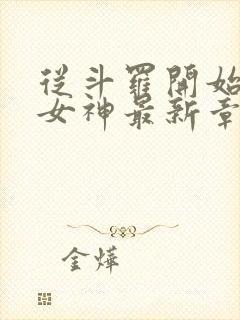 從斗羅開始
女神最新章
金燁